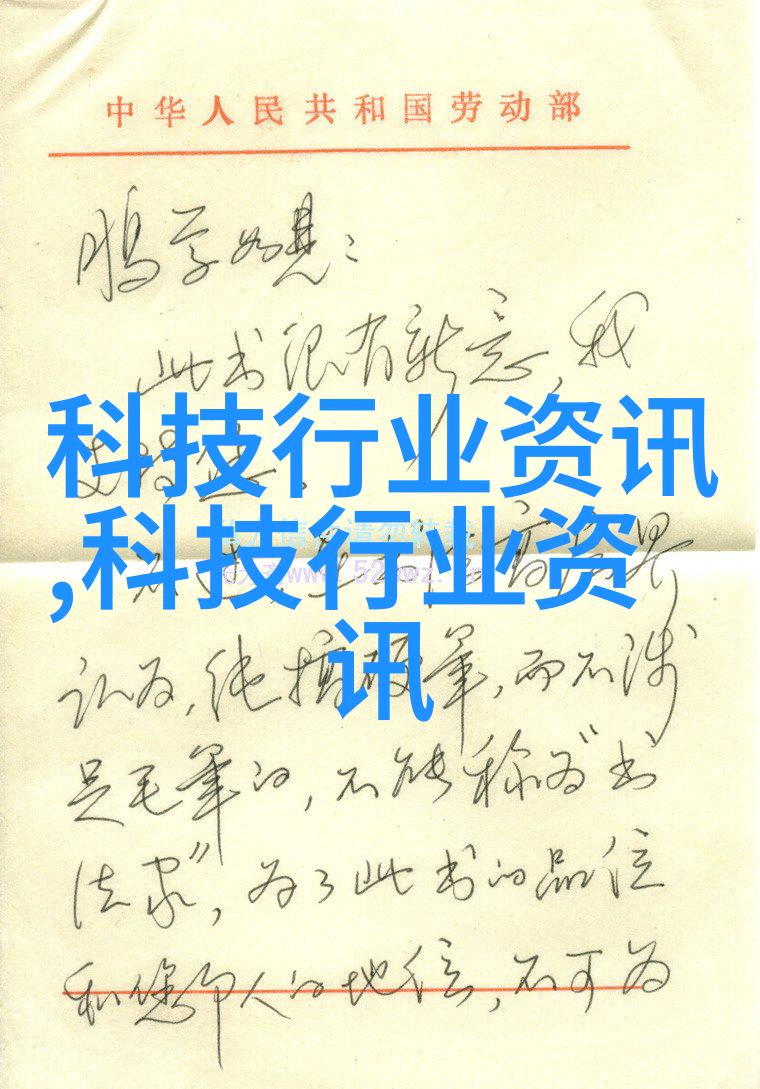 中华人民共和国劳动部
鹏学如晤：
此书很有新意，我
支持您。
科技行业资讯
,科技行业资
讯
认为，纯搞硬笔，而不涉
足毛笔的，不能称为“书
法家”，为了此书的品位
和您个人的地位，不可为